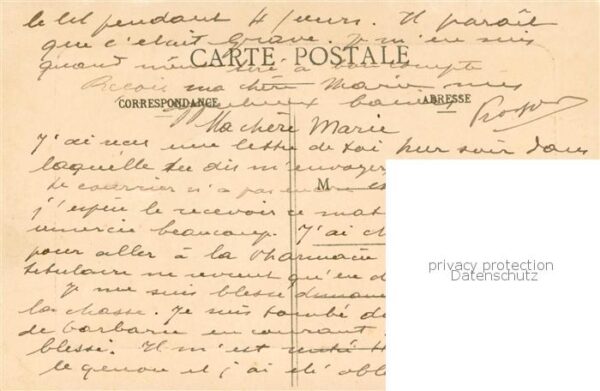 le lit pendant 4 jours. Il paraît
que c'était grave. Je m'en suis
quand même tiré à bon compte
CARTE POSTALE
Reçois ma chère Marie mes
CORRESPONDANCE
ADRESSE
meilleurs baisers
Ma chère Marie
J'ai reçu une lettre de toi hier soir dans
laquelle tu dis m'envoyer
Le courrier n'a pas
M
j'espère le recevoir ce mat
remercie beaucoup. J'ai
pour aller à la Pharmacie
titulaire ne revient qu'en
Je me suis blessé dimanc
la chasse. Je suis tombé
de barbarie en courant
blessé. Il m'est resté
le genou et j'ai été obl
privacy protection
Datenschutz